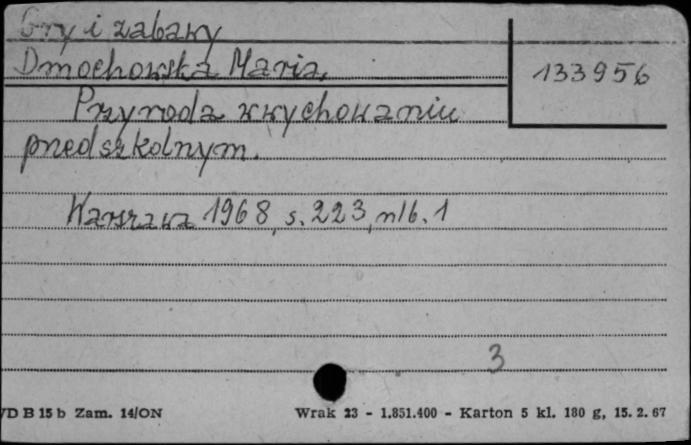 Gry i zabawy
Dmochowska Maria.
133956
Przyroda w wychowaniu
przedszkolnym.
Warszawa 1968, s. 223, nlb. 1
3
VD B 15 b Zam. 14/ON
Wrak 23 - 1.851.400 - Karton 5 kl. 180 g, 15. 2. 67